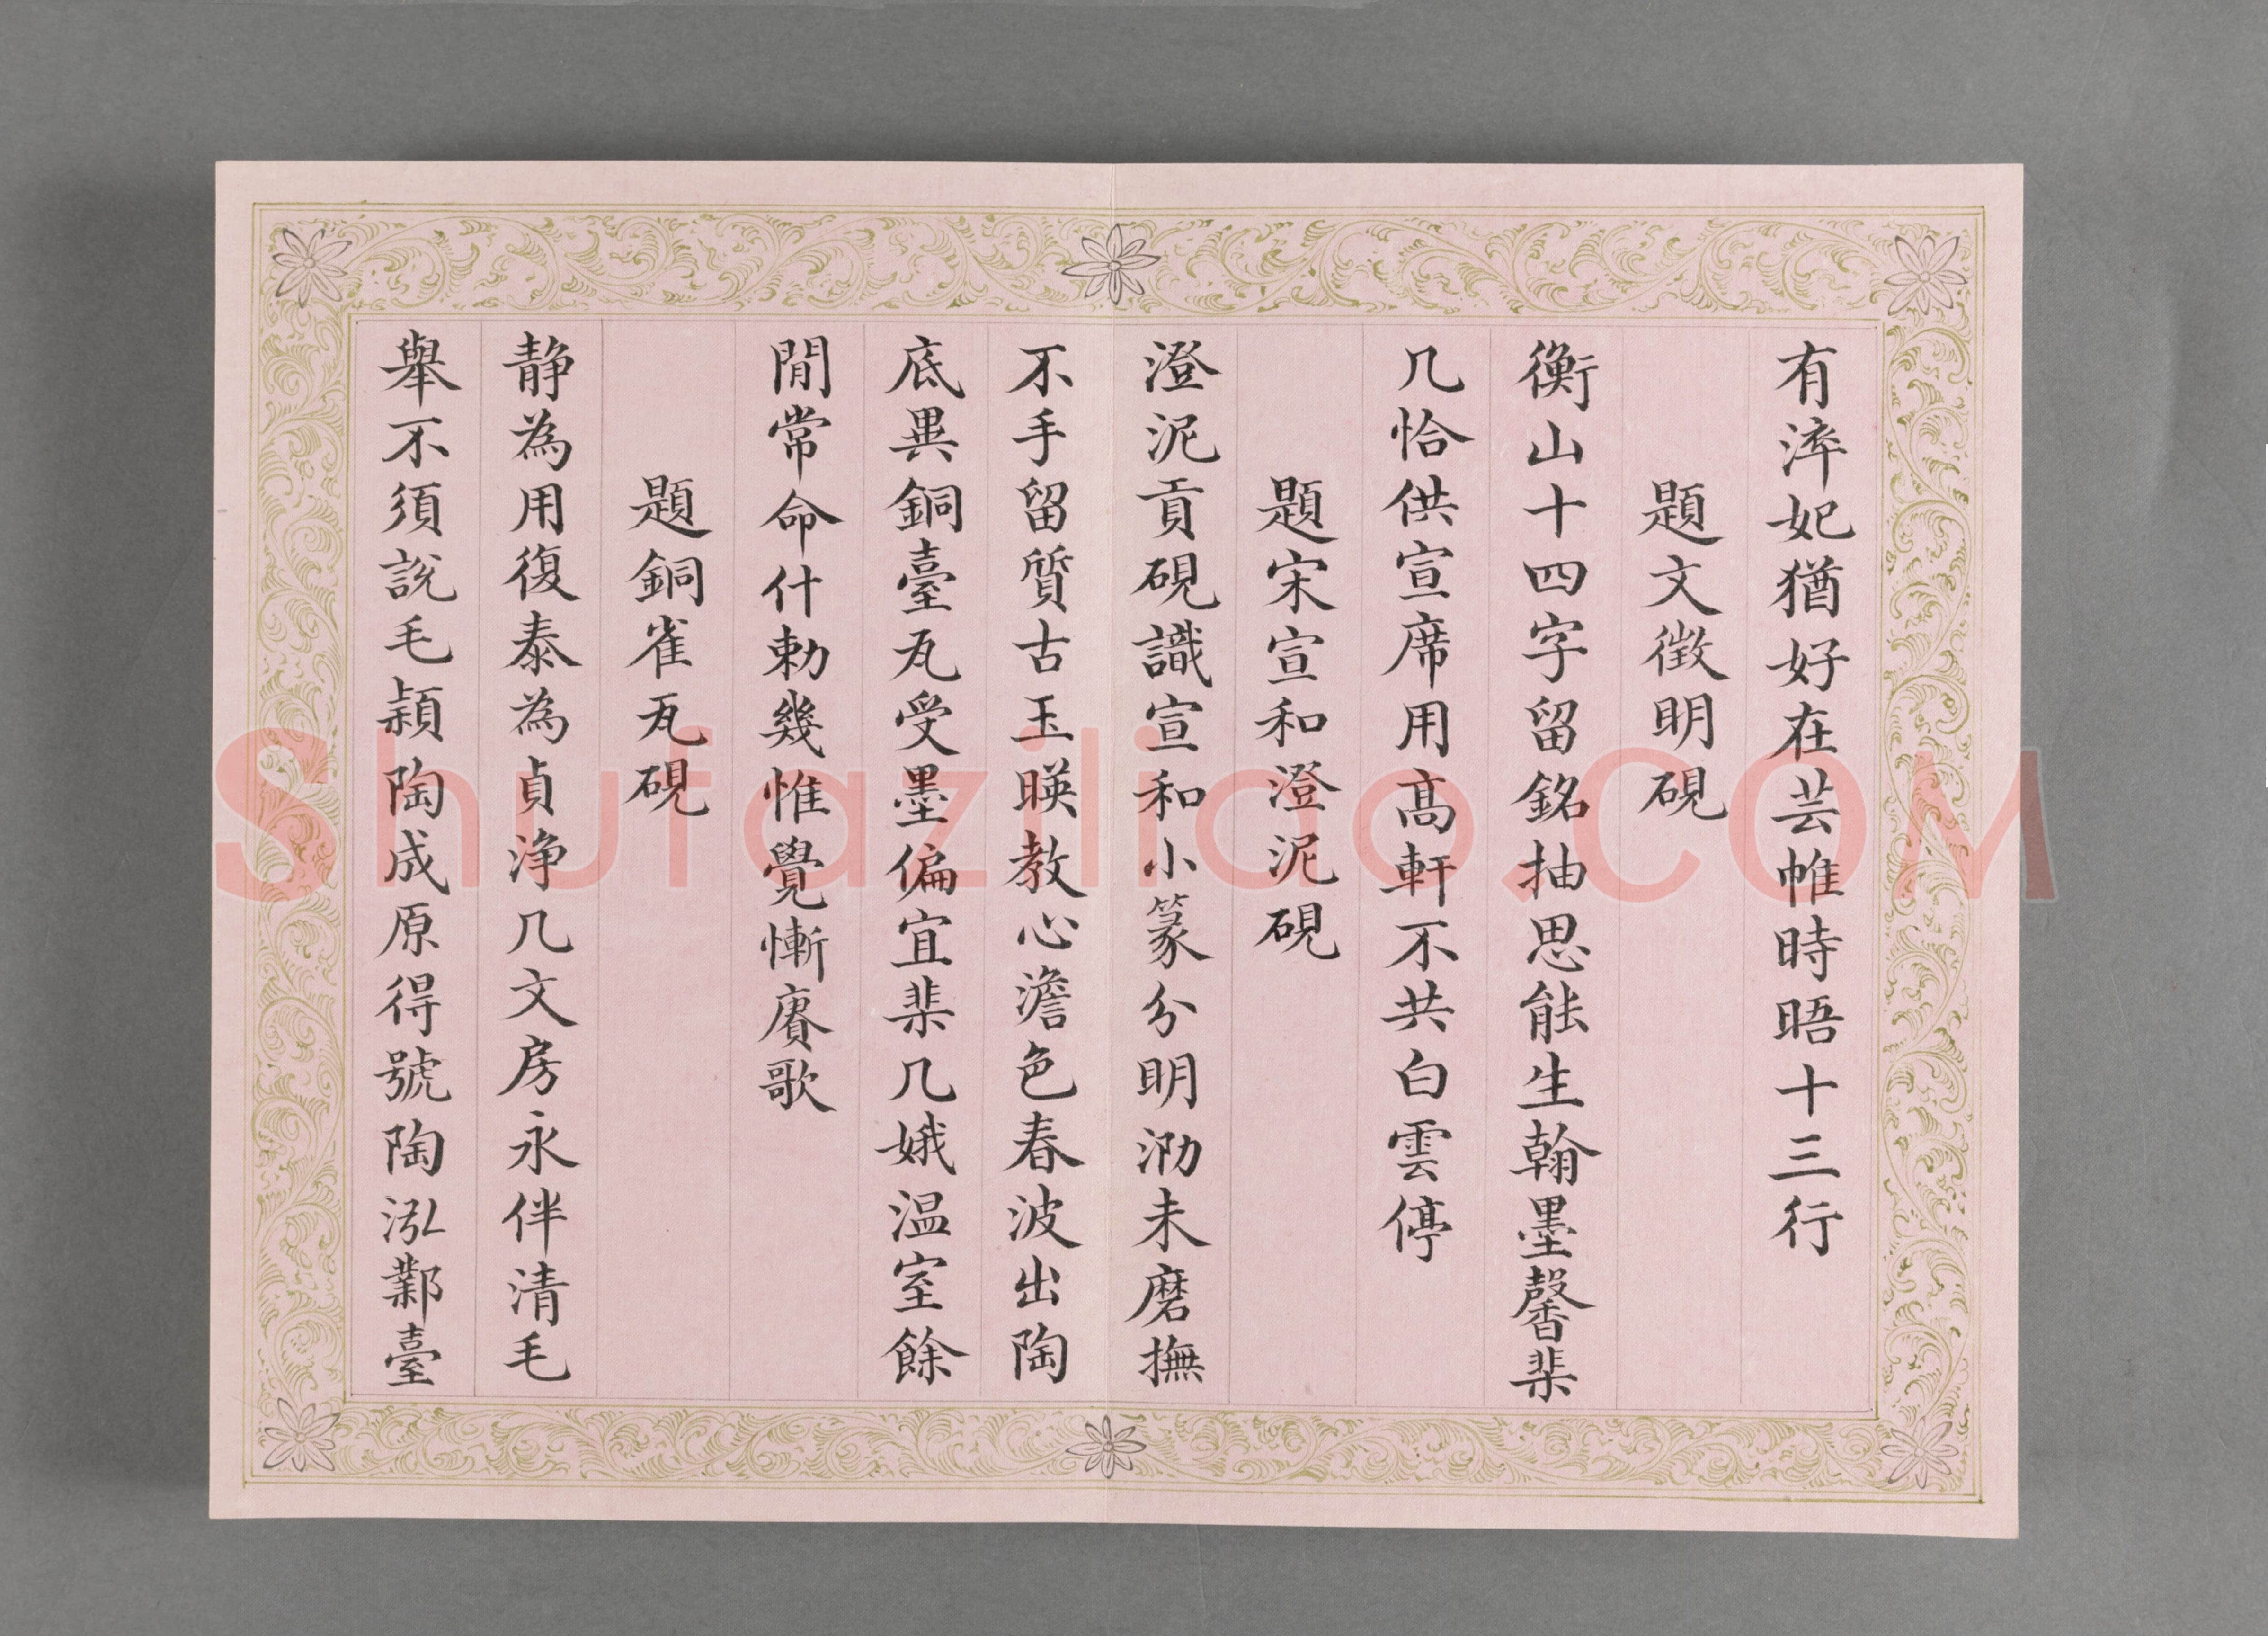 有淬妃猶好在芸帷時晤十三行
題文徵明硯
衡山十四字留銘抽思能生翰墨馨棐
几恰供宣席用髙軒不共白雲停
題宋宣和澄泥硯
澄泥貢硯識宣和小篆分明泐未磨撫
不手留質古玉暎教心澹色春波出陶
底異銅臺瓦受墨偏宜棐几娥温室餘
閒常命什勅幾惟覺慚賡歌
題銅雀瓦硯
静為用復泰為貞浄几文房永伴清毛
舉不須說毛穎陶成原得號陶泓鄴臺
Shufaziliao.COM